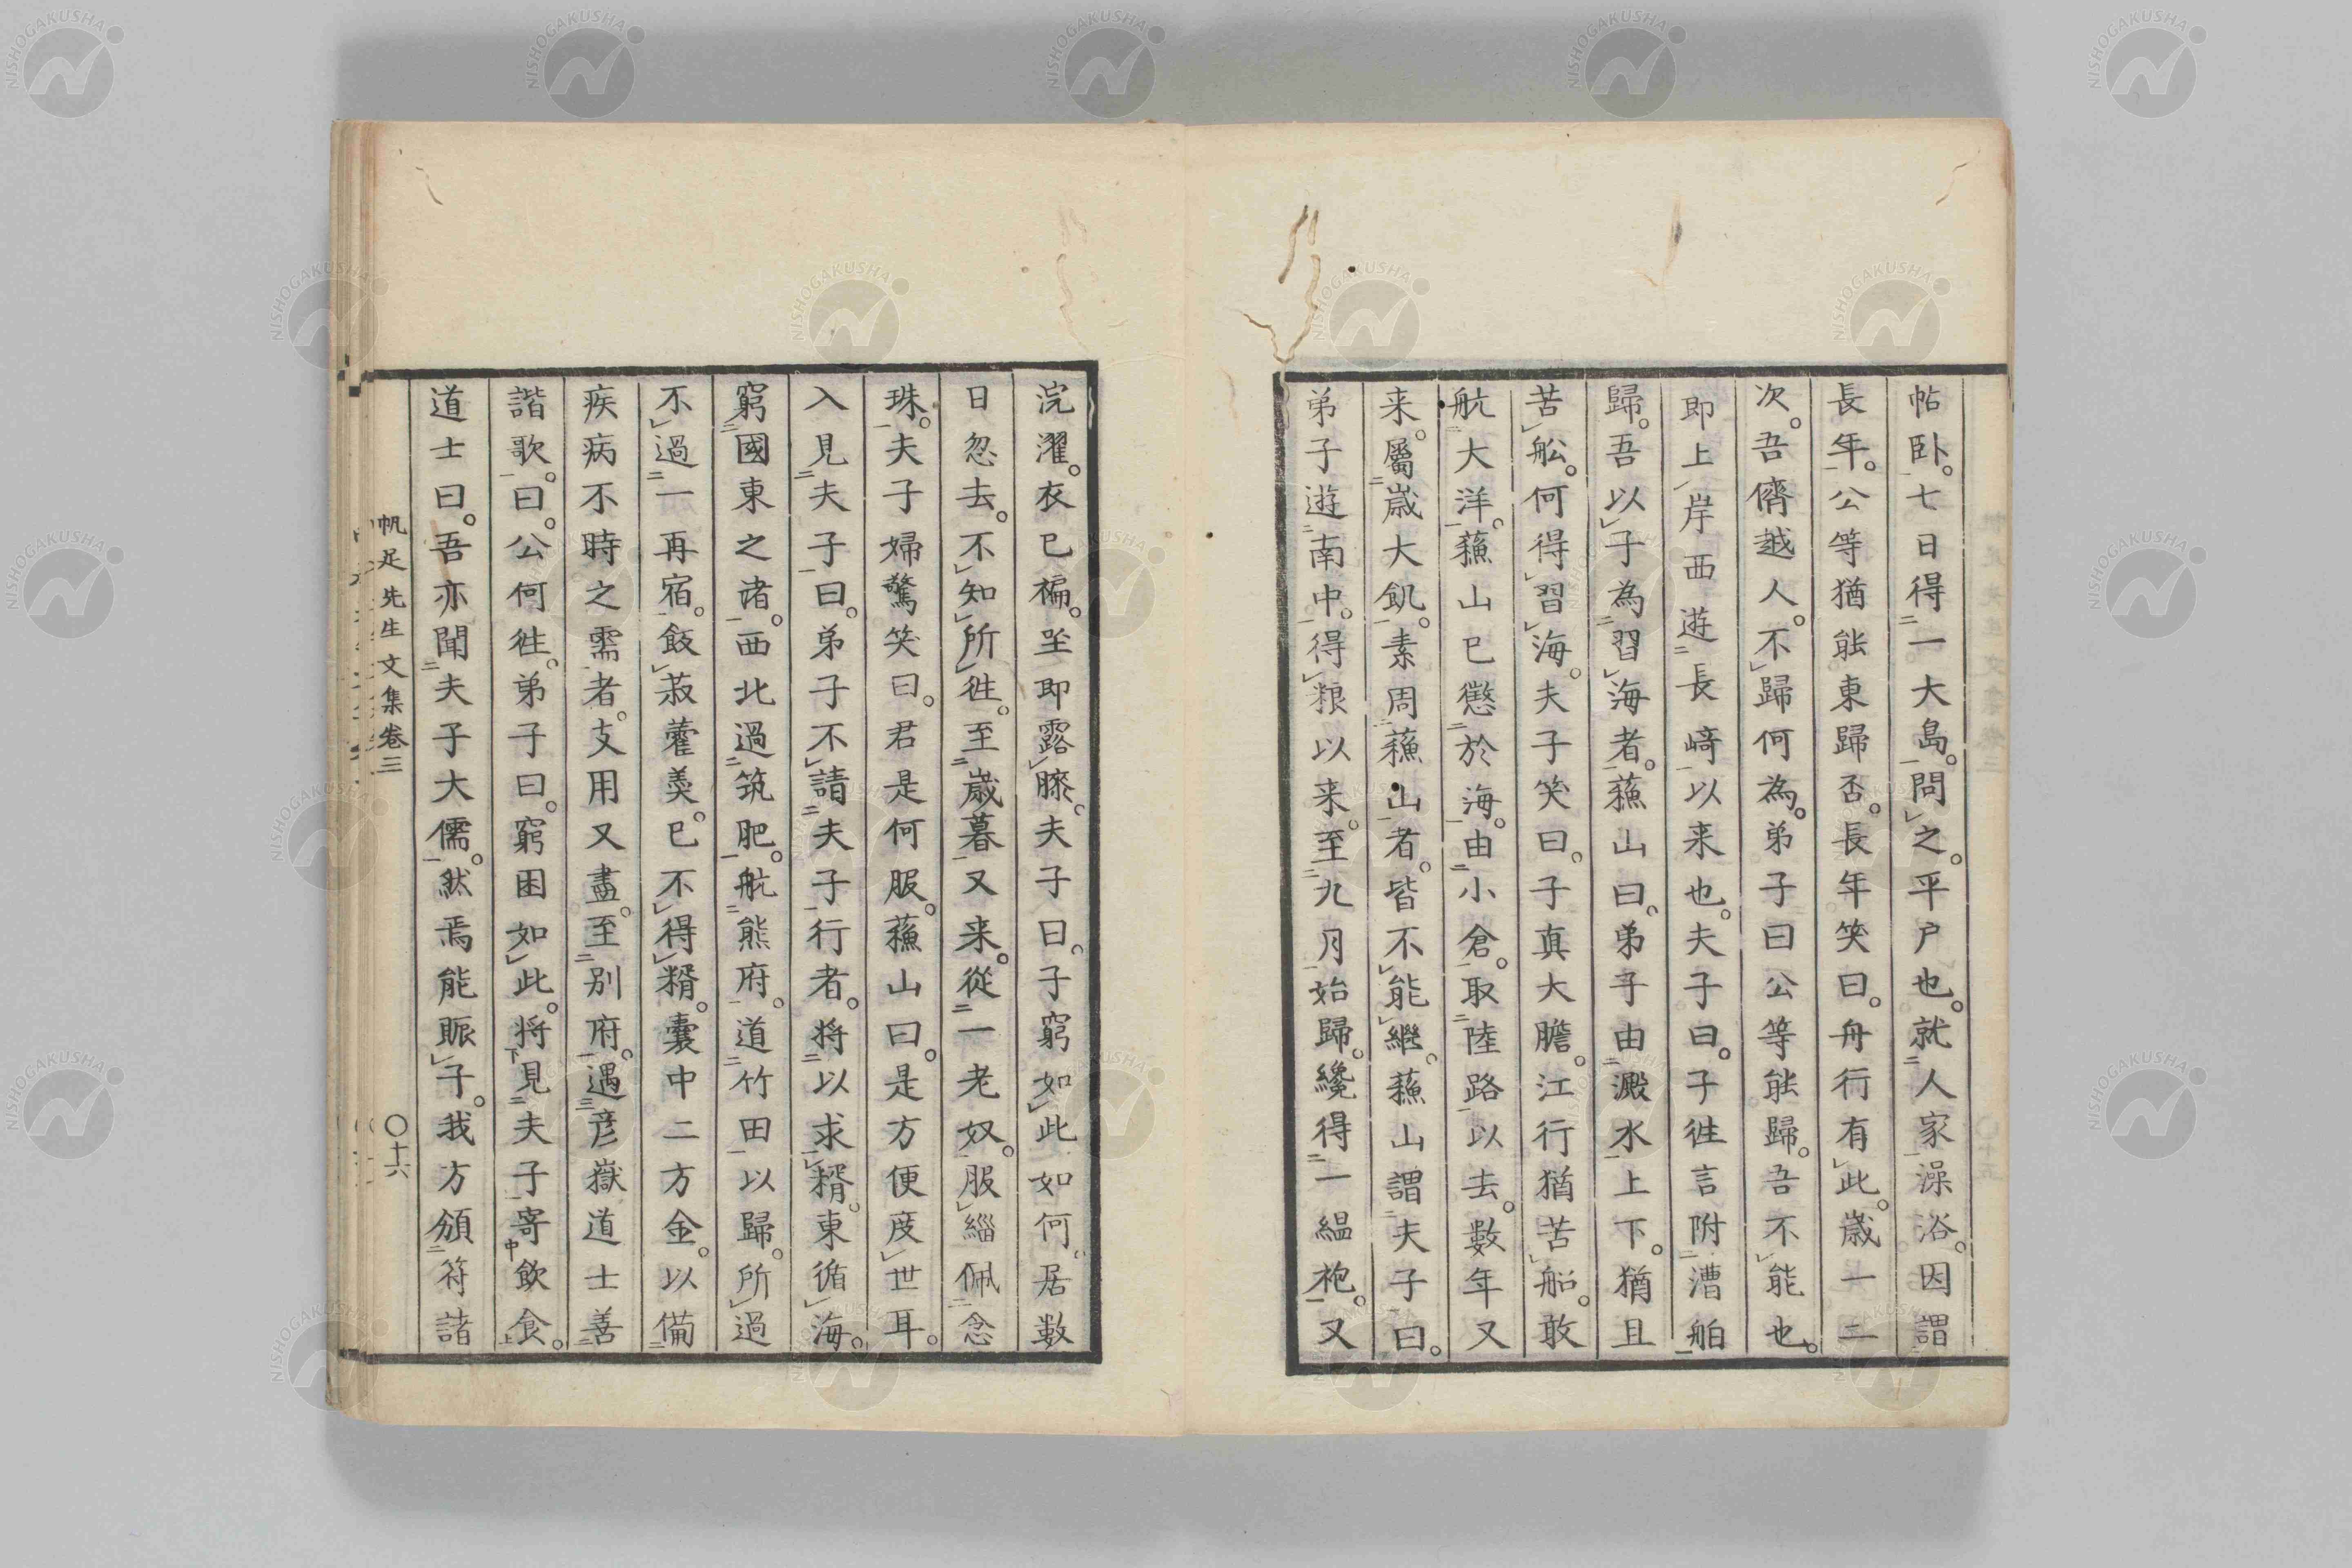 帖卧。七日得一大島。問之。平户也。就人家澡浴。因謂
長年。公等猶能東歸否。長年笑曰。舟行有此。歳一二
次。吾儕越人。不歸何為。弟子曰公等能歸。吾不能也。
即上岸西遊長﨑以来也。夫子曰。子徃言附漕舶
歸。吾以子為習海者。蘓山曰。弟子由澱水上下。猶且
苦舩。何得習海。夫子笑曰。子真大膽。江行猶苦船。敢
航大洋。蘓山已懲於海。由小倉。取陸路以去。數年又
来。屬歳大飢。素周蘓山者。皆不能繼。蘓山謂夫子曰。
弟子遊南中。得粮以来。至九月始歸。纔得一緼袍。又
浣濯。衣已褊。坐即露膝。夫子曰。子窮如此如何。居數
日忽去。不知所徃。至歳暮又来。從一老奴。服緇佩念
珠。夫子婦驚笑曰。君是何服。蘓山曰。是方便度世耳。
入見夫子曰。弟子不請夫子行者。将以求糈。東循海。
窮國東之渚。西北過筑肥。航熊府。道竹田以歸。所過
不過一再宿。飯菽藿羮。已不得糈。嚢中二方金。以備
疾病不時之需者。支用又盡。至別府。遇彦嶽道士善
諧歌。曰。公何徃。弟子曰。窮困如此。将見夫子寄飲食。
道士曰。吾亦聞夫子大儒。然焉能賑子。我方頒符諸
帆足先生文集卷三
〇十六
NISHOGAKUSHA